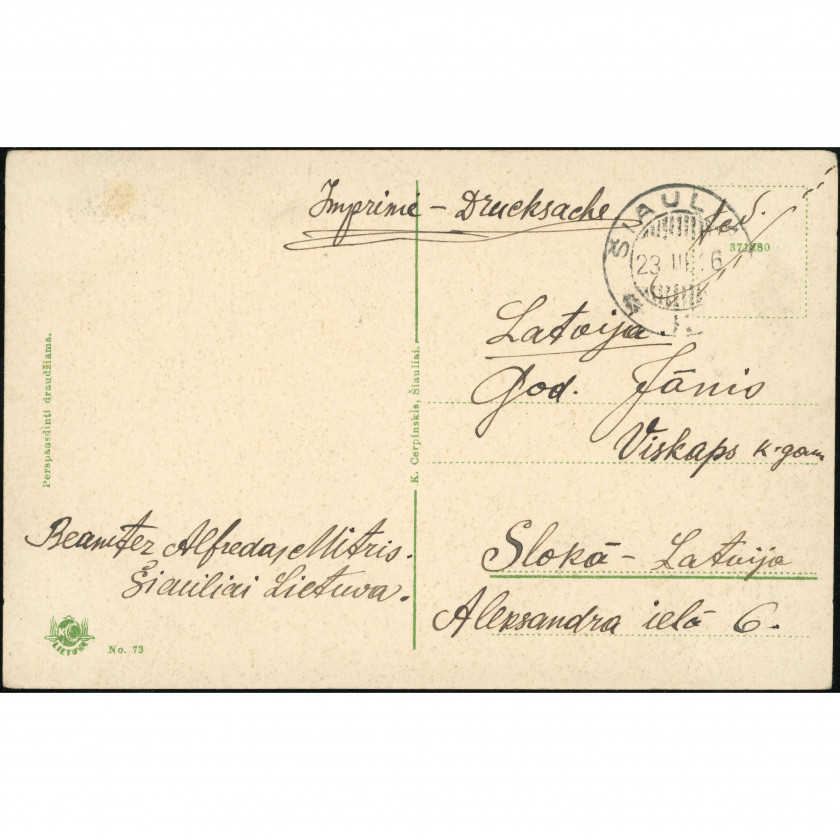 Imprimé - Drucksache
ŠIAULIAI
23 III 6
371280
Latvija.
God. Jānis
Viskaps k-gam
Slokā - Latvija
Aleksandra ielā 6.
Perspausdinti draudžiama.
K. Cerpinskis, Šiauliai.
Beamter Alfreda, Mitris.
Šiauliai Lietuva.
LIETUVA
No. 73